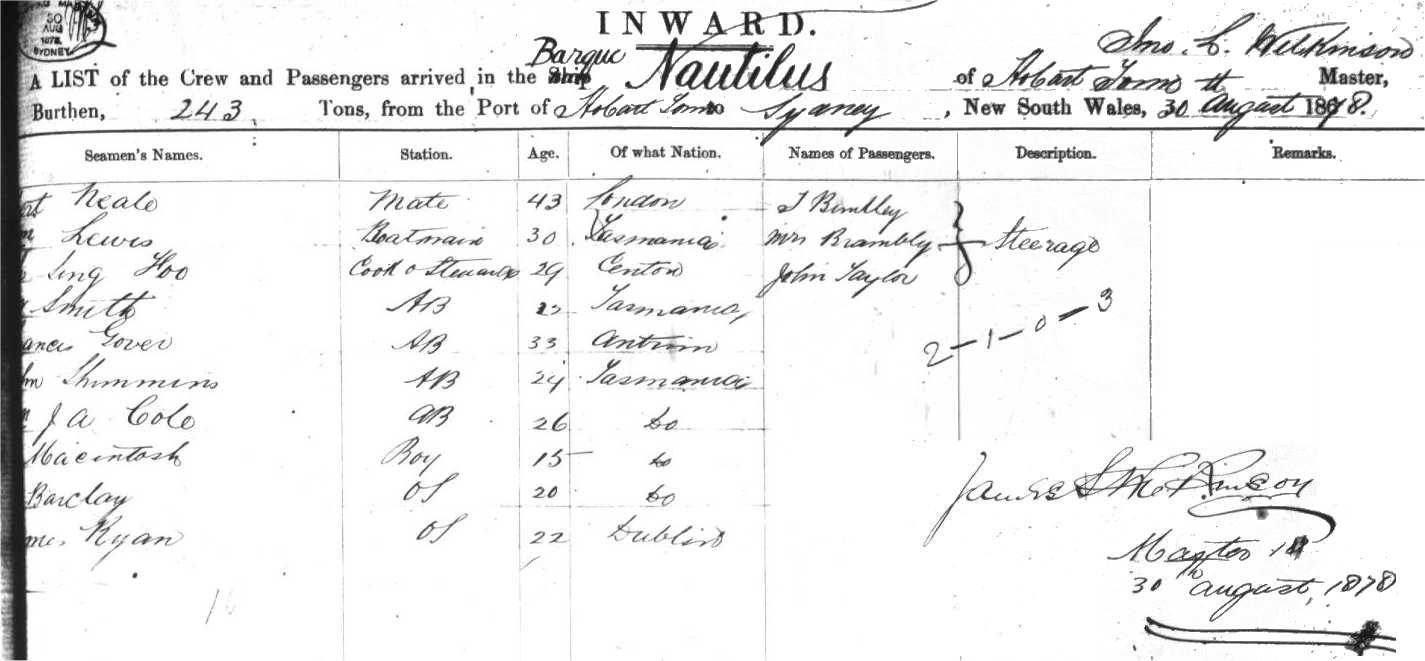 30
AUG
1878
SYDNEY
INWARD.
Jno. L. Wilkinson
A LIST of the Crew and Passengers arrived in the Ship Barque Nautilus of Hobart Town Master,
Burthen, 243 Tons, from the Port of Hobart Town to Sydney, New South Wales, 30th August 1878.
Seamen's Names. Station. Age. Of what Nation. Names of Passengers. Description. Remarks.
Neale Mate 43 London J Bembley
Lewis Boatswain 30 Tasmania Mrs Brambly Steerage
Sing Foo Cook & Steward 29 Centon John Taylor
Smith AB Tasmania,
ances Gover AB 33 Antrim 2-1-0-3
hn Shimmins AB 24 Tasmania
J A Cole AB 26 do
Macintosh Boy 15 do
Barclay OS 20 do
mes Ryan OS 22 Dublin
James
Master
30th August, 1878